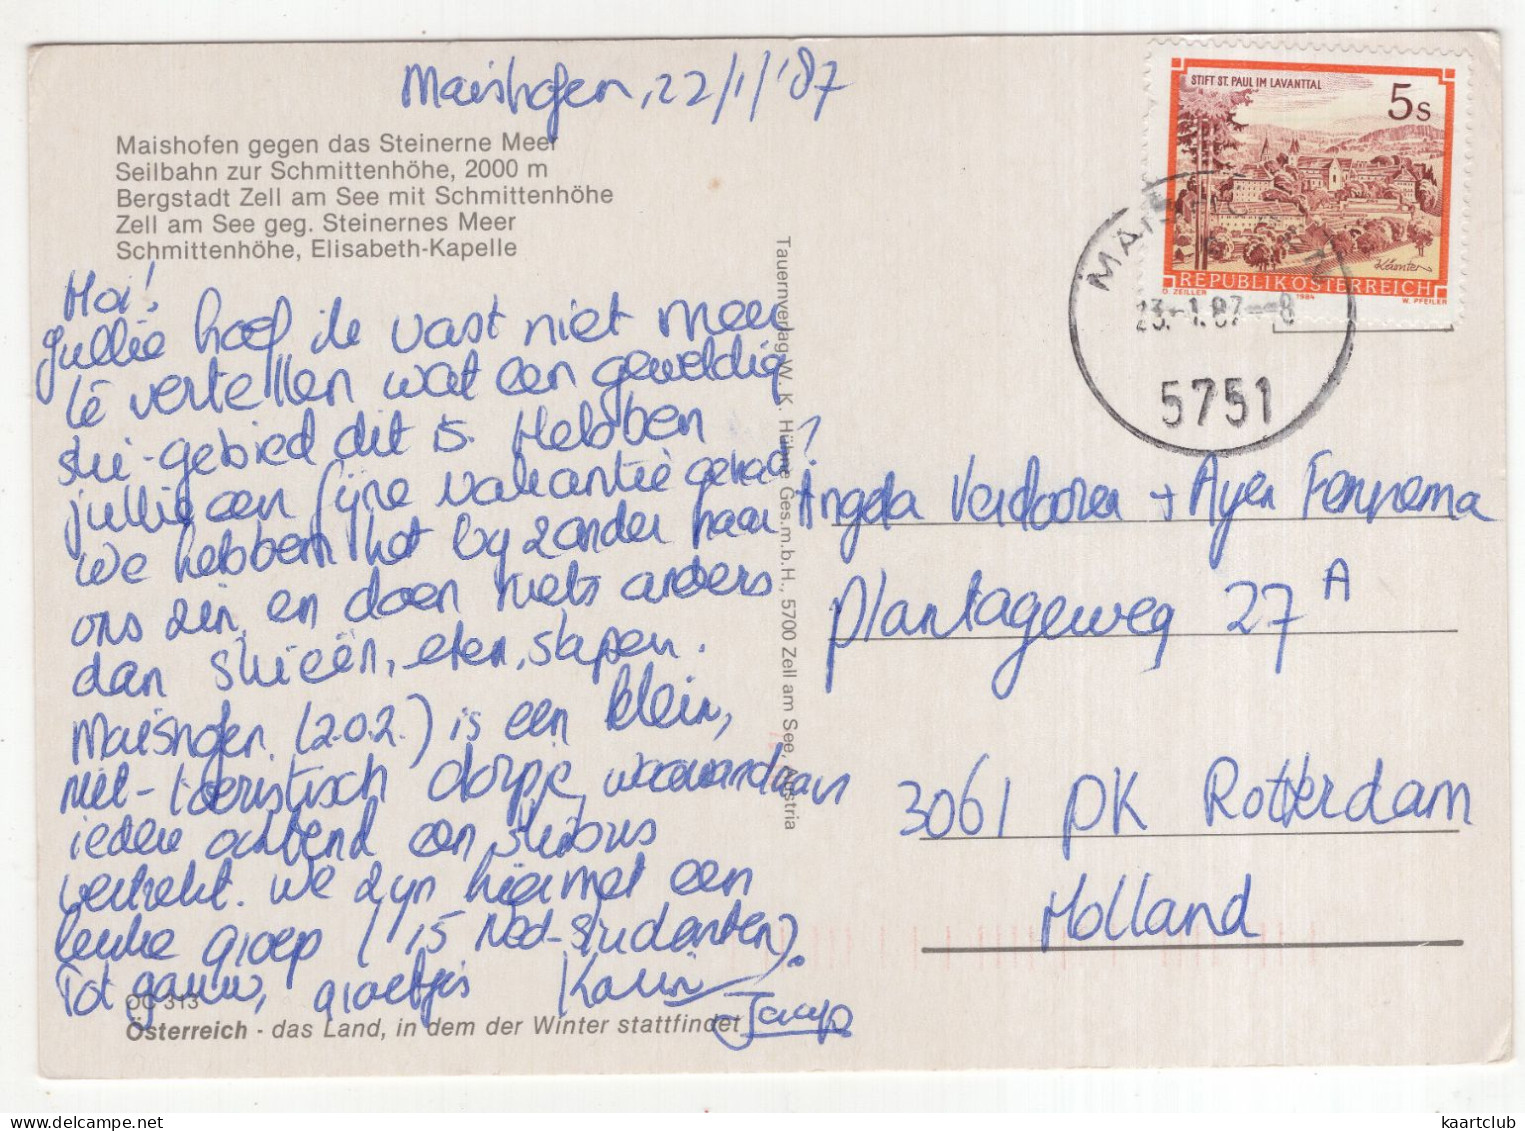 Maishofen, 22/1/'87
Maishofen gegen das Steinerne Meer
Seilbahn zur Schmittenhöhe, 2000 m
Bergstadt Zell am See mit Schmittenhöhe
Zell am See geg. Steinernes Meer
Schmittenhöhe, Elisabeth-Kapelle
Hoi!
Jullie hoef ik vast niet meer
te vertellen wat een geweldig
ski-gebied dit is. Hebben
jullie een fijne vakantie gehad?
We hebben het byzonder naar
ons zin en doen niets anders
dan skieën, eten, slapen.
Maishofen (z.o.z.) is een klein,
niet-toeristisch dorpje, waarvandaan
iedere ochtend een skibus
vertrekt. We zyn hier met een
leuke groep (15 Ned-studenten).
Tot gauw, groetjes Karin
Jaap
OC 313
Österreich - das Land, in dem der Winter stattfindet
Tauernverlag W. K. Hühne Ges.m.b.H., 5700 Zell am See, Austria
STIFT ST. PAUL IM LAVANTTAL
5s
Kärnten
REPUBLIK ÖSTERREICH
O. ZEILLER 1984 W. PFEILER
MAISHOFEN
23.-1.87-8
5751
Angela Verdooren + Ayen Fennema
Plantageweg 27 A
3061 PK Rotterdam
Holland
kaartclub